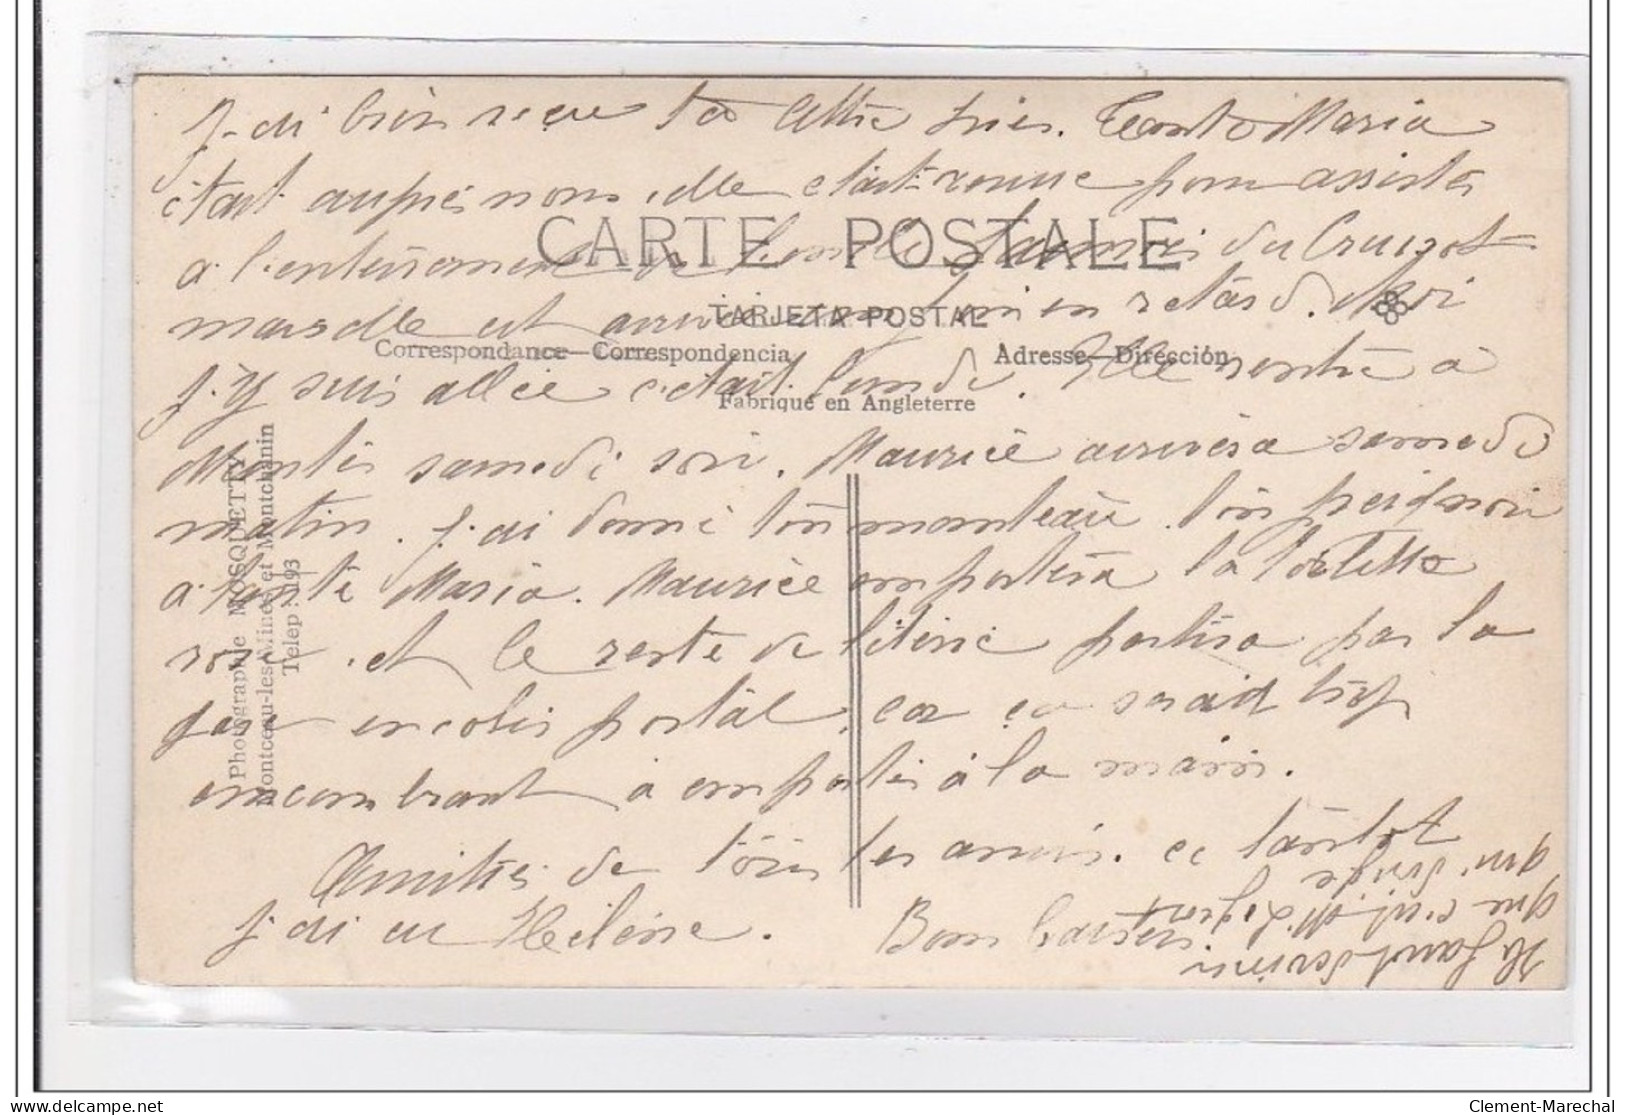 J'ai bien reçu ta lettre hier. Tante Maria
était auprès nous, elle était venue pour assister
à l'enterrement de du Creusot
mais elle est arrivée en retard. Moi
j'y suis allée c'était lundi. Elle rentre à
samedi soir. Maurice arrivera samedi
matin. J'ai donné ton manteau ton peignoir
a tante Maria. Maurice emportera la toilette
rose et le reste de literie partira par la
gare en colis postal, car ça serait trop
encombrant à emporter à la main.
Amitiés de tous les amis. a tantôt
J'ai eu Hélène. Bons baisers
Il faut devenir
que c'est M. Légeret
qui dirige
CARTE POSTALE
TARJETA POSTAL
Correspondance—Correspondencia
Adresse—Dirección
Fabriqué en Angleterre
Photographie MOSQUETTY
Montceau-les-Mines et Montchanin
Telep : 193
Clement-Marechal